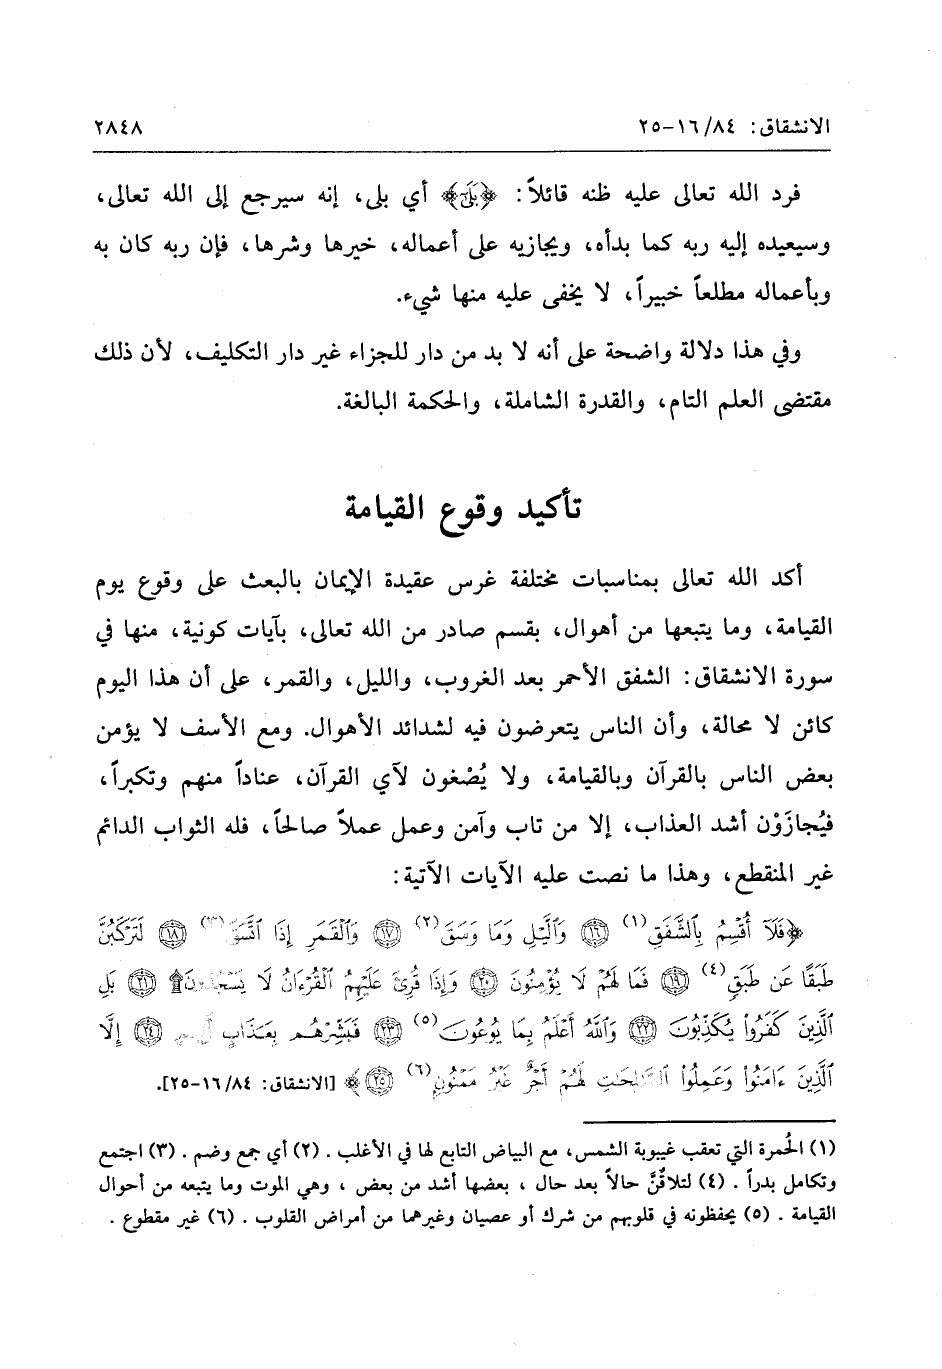 الانشقاق: ٨٤/ ١٦-٢٥ ٢٨٤٨
فرد الله تعالى عليه ظنه قائلاً: ﴿بَلَىٰ﴾ أي بلى، إنه سيرجع إلى الله تعالى،
وسيعيده إليه ربه كما بدأه، ويجازيه على أعماله، خيرها وشرها، فإن ربه كان به
وبأعماله مطلعاً خبيراً، لا يخفى عليه منها شيء.
وفي هذا دلالة واضحة على أنه لا بد من دار للجزاء غير دار التكليف، لأن ذلك
مقتضى العلم التام، والقدرة الشاملة، والحكمة البالغة.
تأكيد وقوع القيامة
أكد الله تعالى بمناسبات مختلفة غرس عقيدة الإيمان بالبعث على وقوع يوم
القيامة، وما يتبعها من أهوال، بقسم صادر من الله تعالى، بآيات كونية، منها في
سورة الانشقاق: الشفق الأحمر بعد الغروب، والليل، والقمر، على أن هذا اليوم
كائن لا محالة، وأن الناس يتعرضون فيه لشدائد الأهوال. ومع الأسف لا يؤمن
بعض الناس بالقرآن وبالقيامة، ولا يُصْغون لآي القرآن، عناداً منهم وتكبراً،
فيُجازَوْن أشد العذاب، إلا من تاب وآمن وعمل عملاً صالحاً، فله الثواب الدائم
غير المنقطع، وهذا ما نصت عليه الآيات الآتية:
﴿فَلَآ أُقْسِمُ بِٱلشَّفَقِ(١) ١٦ وَٱلَّيْلِ وَمَا وَسَقَ(٢) ١٧ وَٱلْقَمَرِ إِذَا ٱتَّسَقَ(٣) ١٨ لَتَرْكَبُنَّ
طَبَقًا عَن طَبَقٍ(٤) ١٩ فَمَا لَهُمْ لَا يُؤْمِنُونَ ٢٠ وَإِذَا قُرِئَ عَلَيْهِمُ ٱلْقُرْءَانُ لَا يَسْجُدُونَ۩ ٢١ بَلِ
ٱلَّذِينَ كَفَرُوا۟ يُكَذِّبُونَ ٢٢ وَٱللَّهُ أَعْلَمُ بِمَا يُوعُونَ(٥) ٢٣ فَبَشِّرْهُم بِعَذَابٍ أَلِيمٍ ٢٤ إِلَّا
ٱلَّذِينَ ءَامَنُوا۟ وَعَمِلُوا۟ ٱلصَّٰلِحَٰتِ لَهُمْ أَجْرٌ غَيْرُ مَمْنُونٍ(٦) ٢٥﴾ [الانشقاق: ٨٤/ ١٦-٢٥].
(١) الحُمرة التي تعقب غيبوبة الشمس، مع البياض التابع لها في الأغلب . (٢) أي جمع وضم . (٣) اجتمع
وتكامل بدراً . (٤) لتلاقُنَّ حالاً بعد حال ، بعضها أشد من بعض ، وهي الموت وما يتبعه من أحوال
القيامة . (٥) يحفظونه في قلوبهم من شرك أو عصيان وغيرهما من أمراض القلوب . (٦) غير مقطوع .